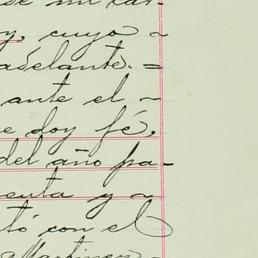 se mi car-
y, cuyo ~
adelante. =
ante el ~
e doy fé,
del año pa-
enta y ~
tó con el
Martinez